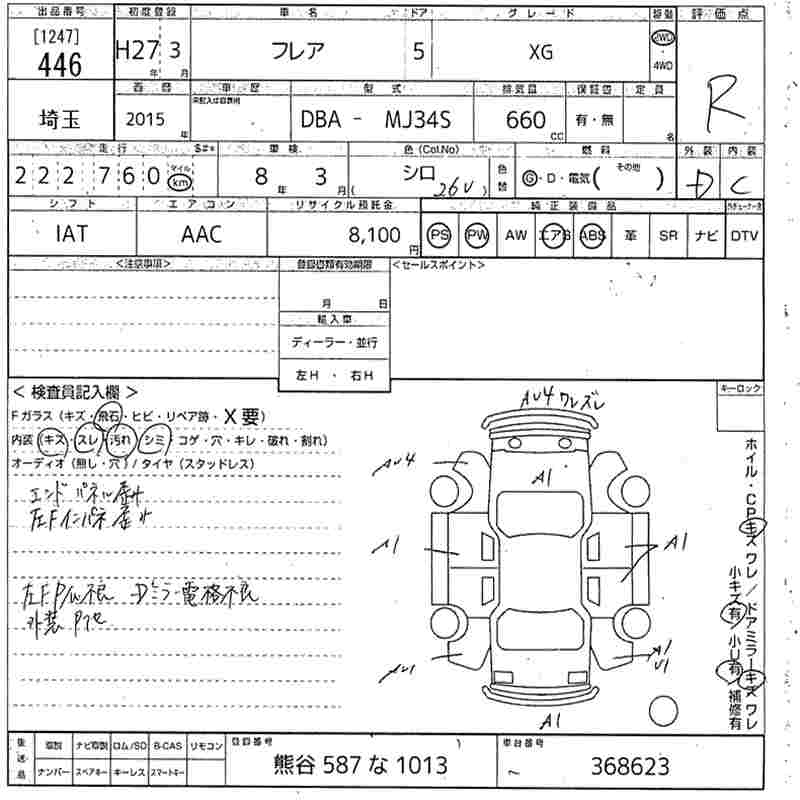 出品番号 初度登録 車名 ドア グレード 駆動 評価点
[1247] 446 H27 年 3 月 フレア 5 XG 2WD 4WD R
西暦 車歴 型式 排気量 保証書 定員
埼玉 2015 年 DBA - MJ34S 660 CC 有・無 名
走行 車検 色(Col.No) 燃料 外装 内装
222760 マイル km 8 年 3 月 シロ ( 26U ) 色替 G・D・電気( その他 ) D C
シフト エアコン リサイクル預託金 純正装備品
IAT AAC 8,100 円 PS PW AW エアB ABS 革 SR ナビ DTV
<注意事項> 登録書類有効期限 <セールスポイント>
月 日
輸入車
ディーラー・並行
左H ・ 右H
<検査員記入欄> キーロック
Fガラス(キズ・飛石・ヒビ・リペア跡・X要)
内装(キズ・スレ・汚れ・シミ・コゲ・穴・キレ・破れ・割れ)
オーディオ(無し・穴)/タイヤ(スタッドレス)
エンドパネル
左F P/W不良 Dミラー電格不良
AU4 ワレズレ
A1
AU4
A1 A1
AU1 A1 U1
A1
ホイル・CPキズワレ/ドアミラーキズワレ
小キズ有 小U有 補修有
後送品 車検 ナビ取説 ロム/SD B-CAS リモコン 登録番号 車台番号
ナンバー スペアキー キーレス スマートキー 熊谷 587 な 1013 368623